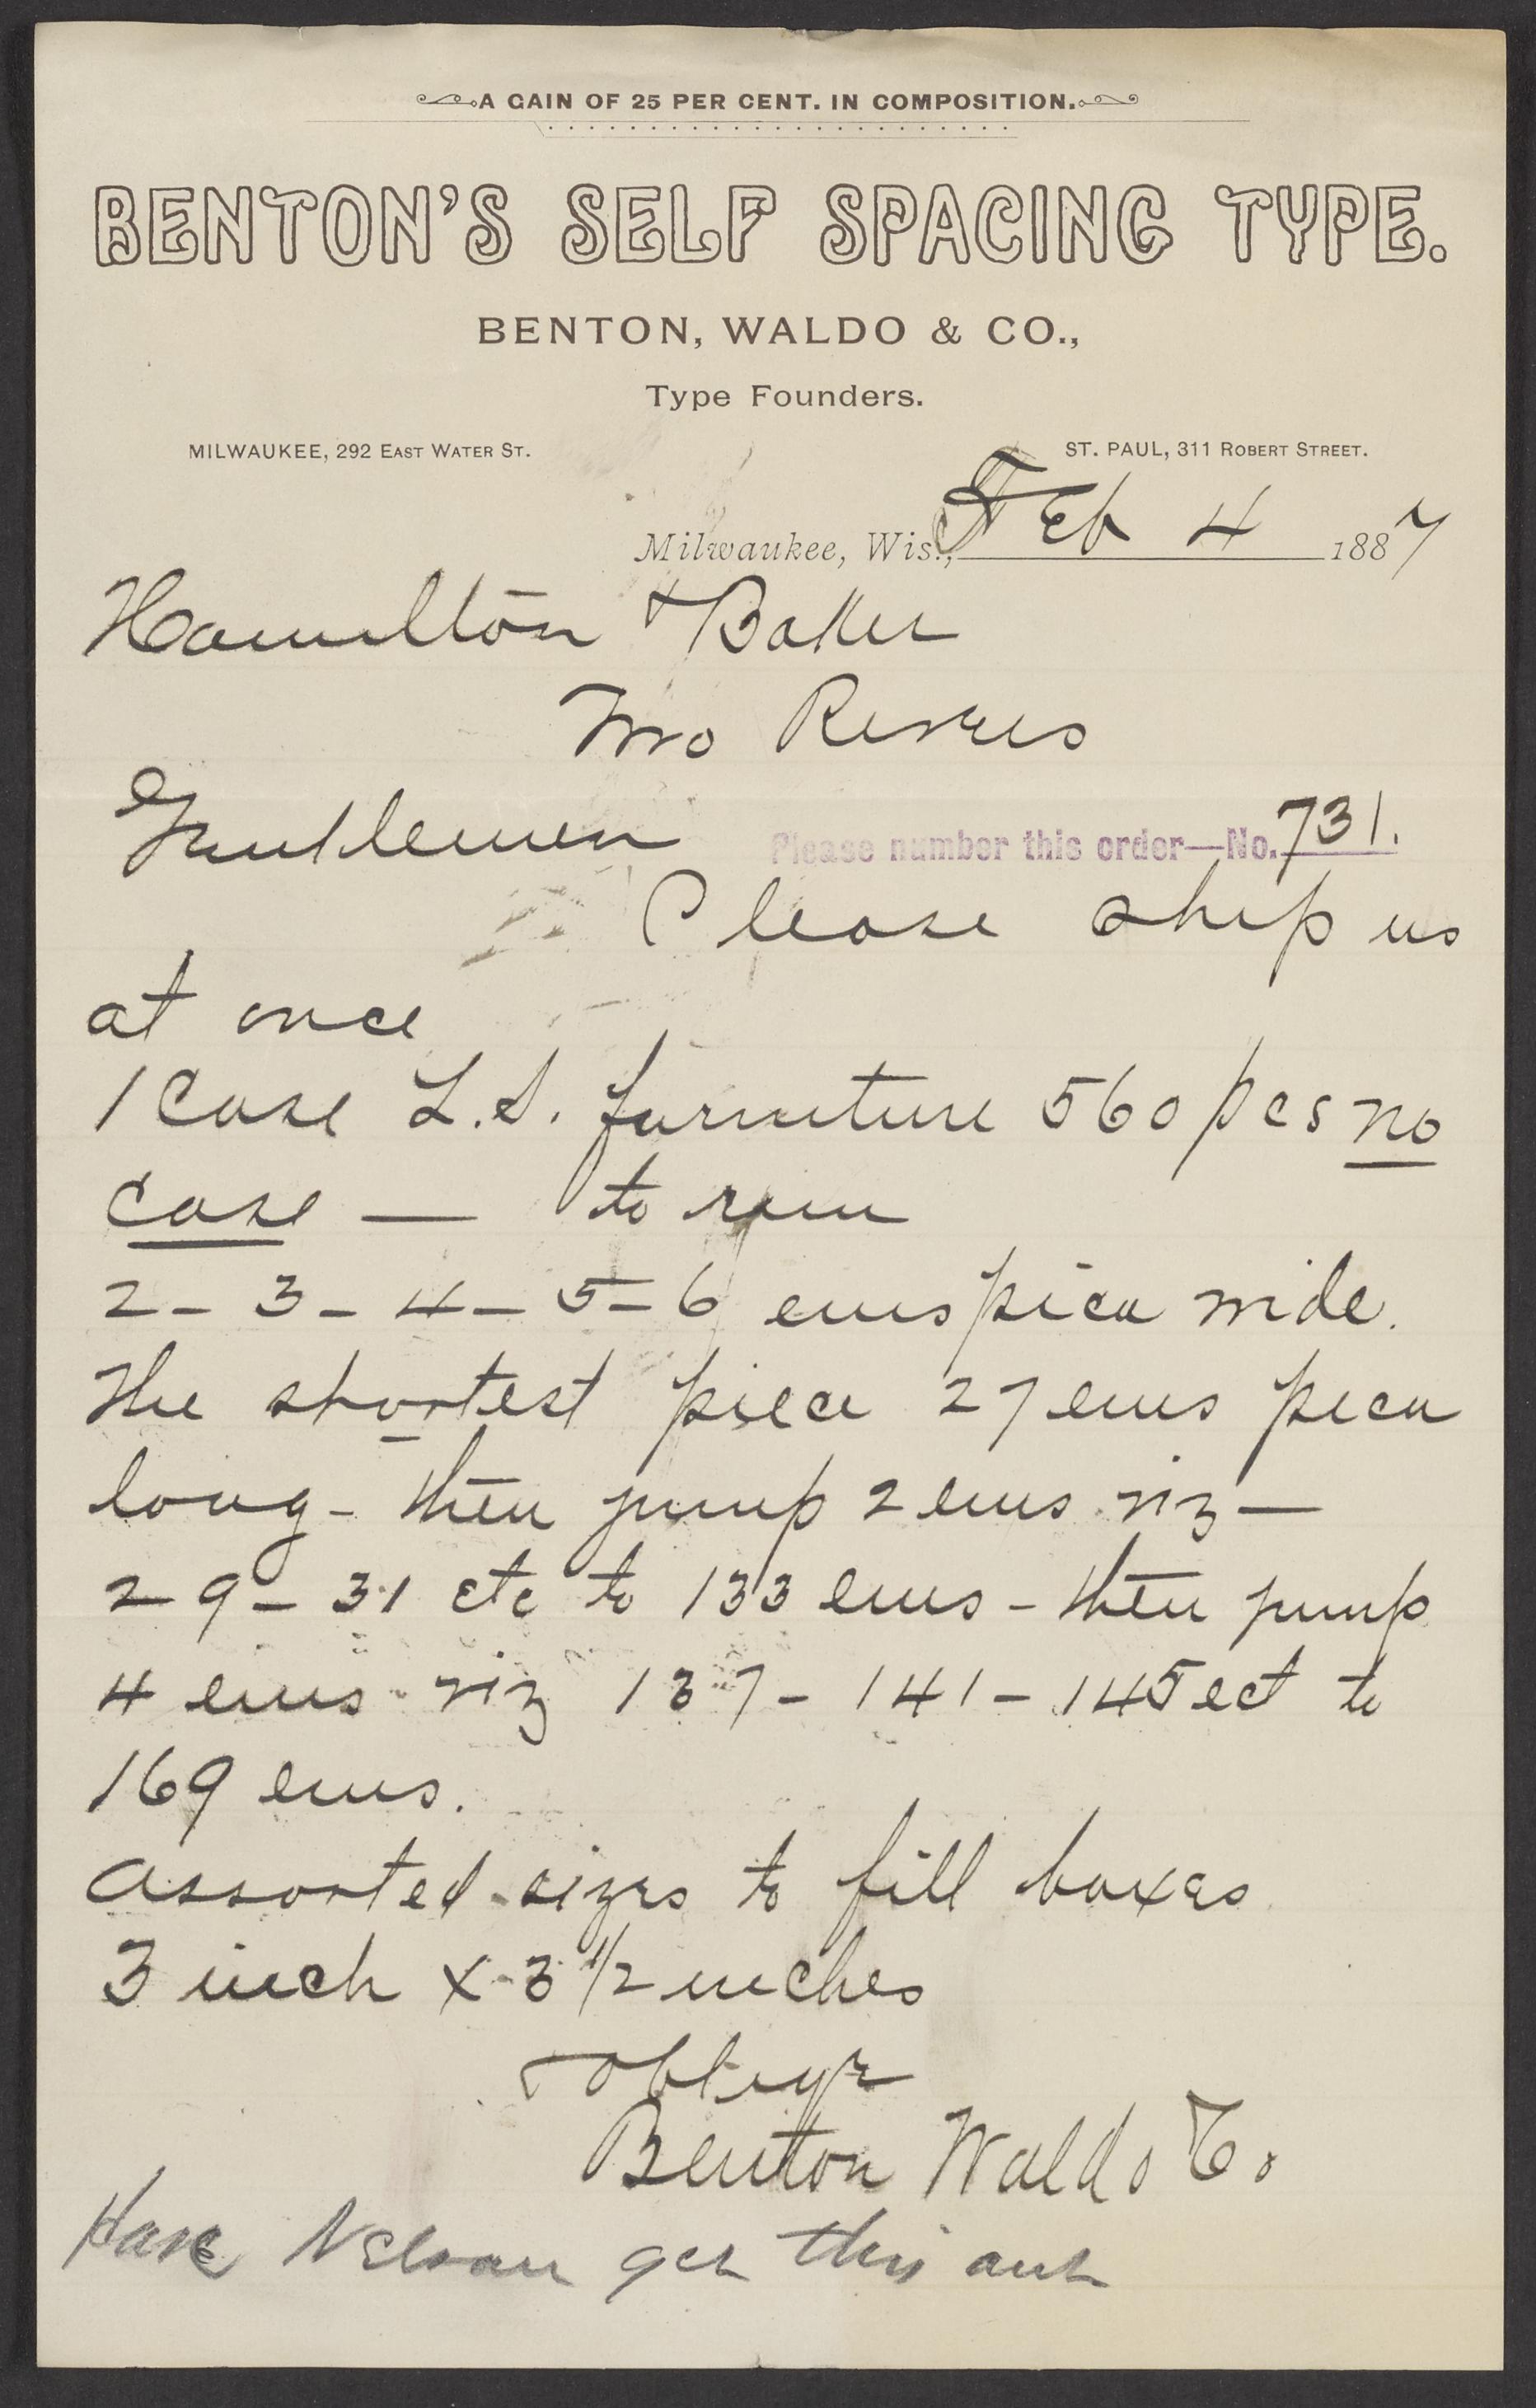 A GAIN OF 25 PER CENT. IN COMPOSITION.
BENTON'S SELF SPACING TYPE.
BENTON, WALDO & CO.,
Type Founders.
MILWAUKEE, 292 EAST WATER ST. ST. PAUL, 311 ROBERT STREET.
Milwaukee, Wis., Feb 4 1887
Hamilton & Baker
Two Rivers
Gentlemen Please number this order—No. 731.
Please ship us
at once
1 Case L.S. furniture 560 pcs no
case — to run
2 - 3 - 4 - 5 - 6 ems pica wide.
The shortest piece 27 ems pica
long - then jump 2 ems viz —
29 - 31 etc to 133 ems - then jump
4 ems viz 137 - 141 - 145 ect to
169 ems.
Assorted sizes to fill boxes
3 inch x 3 1/2 inches
& oblige
Benton Waldo & Co
Have Nelson get this out